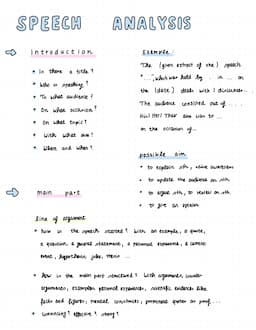 SPEECH ANALYSIS
Introduction
• Is there a title?
• Who is speaking?
• To what audience?
• On what occasion?
• On what topic?
• With what aim?
• Where and when?
Example:
The (given extract of the) speech
"...", which was held by ... in ... on
the (date) deals with / discusses...
The audience consisted out of ...
His / Her / Their aim was to ...
on the occasion of...
possible aim
• to explain sth, raise awareness
• to update the audience on sth
• to argue sth, to reflect on sth
• to give an opinion
main part
line of argument
• how is the speech started? With an example, a quote,
a question, a general statement, a personal experience, a current
event, hypothetic joke, thesis ...
• how is the main part structured? With arguments, counter
arguments, examples, personal experiences, scientific evidence like
facts and figures, mental constructs, prominent quotes as proof...
• convincing? effective? strong?